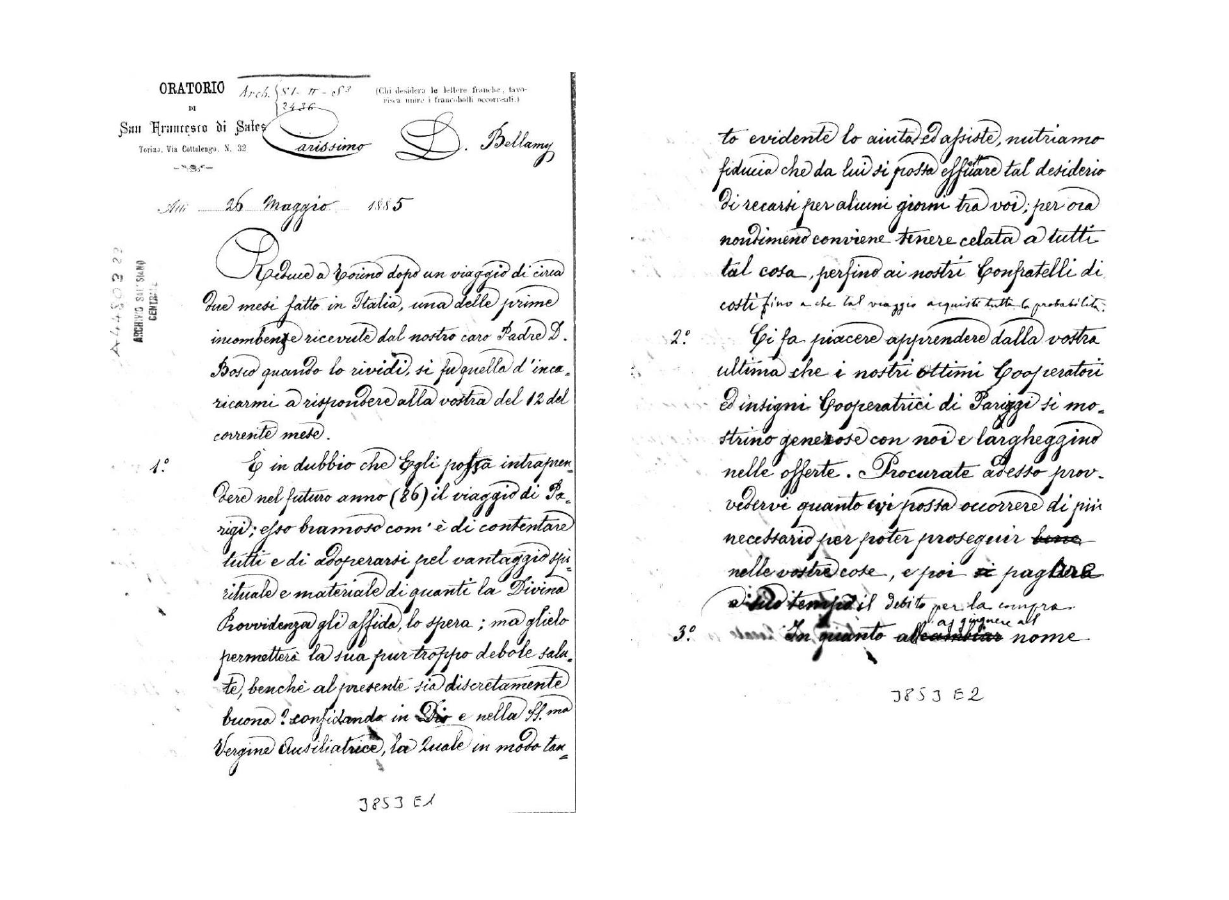 ORATORIO
DI
San Francesco di Sales
Torino, Via Cottolengo, N. 32
Arch.
2436
(Chi desidera le lettere franche, favo-
risca unire i francobolli occorrenti.)
Carissimo D. Bellamy
Addì 26 Maggio 1885
A4480322
ARCHIVIO SALESIANO
CENTRALE
Reduce a Torino dopo un viaggio di circa
due mesi fatto in Italia, una delle prime
incombenze ricevute dal nostro caro Padre D.
Bosco quando lo rividi, si fu quella d'inca-
ricarmi a rispondere alla vostra del 12 del
corrente mese.
1.° È in dubbio che Egli possa intrapren-
dere nel futuro anno (86) il viaggio di Pa-
rigi; esso bramoso com'è di contentare
tutti e di adoperarsi pel vantaggio spi-
rituale e materiale di quanti la Divina
Provvidenza gli affida, lo spera; ma glielo
permetterà la sua pur troppo debole salu-
te, benchè al presente sia discretamente
buona? confidando in Dio e nella SS.ma
Vergine Ausiliatrice, la Quale in modo tan-
3853 E1
to evidente lo aiuta ed assiste, nutriamo
fiducia che da lui si possa effettuare tal desiderio
di recarsi per alcuni giorni tra voi; per ora
nondimeno conviene tenere celata a tutti
tal cosa, perfino ai nostri Confratelli di
costì fino a che tal viaggio acquisti tutta la probabilità.
2.° Ci fa piacere apprendere dalla vostra
ultima che i nostri ottimi Cooperatori
ed insigni Cooperatrici di Pariggi si mo-
strino generose con noi e largheggino
nelle offerte. Procurate adesso prov-
vedervi quanto vi possa occorrere di più
necessario per poter proseguir bene
nelle vostre cose, e poi si pagherà
a suo tempo il debito per la compra.
aggiugnere al
3.° In quanto al cambiar nome
3853 E2